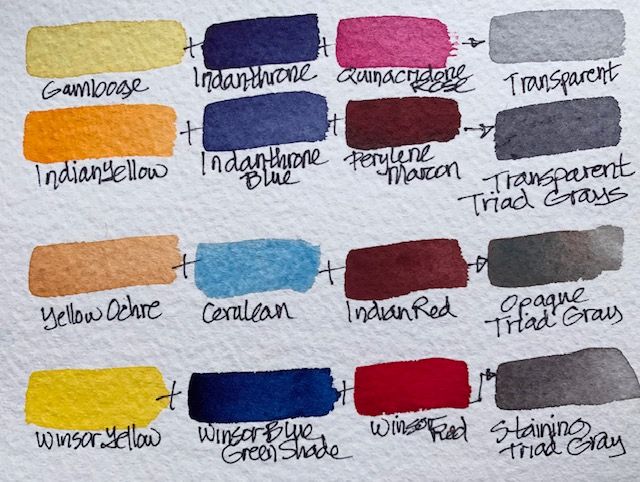 Gamboge + Indanthrone + Quinacridone Rose → Transparent
Indian Yellow + Indanthrone Blue + Perylene Maroon → Transparent Triad Grays
Yellow Ochre + Cerulean + Indian Red → Opaque Triad Gray
Winsor Yellow + Winsor Blue Green Shade + Winsor Red → Staining Triad Gray